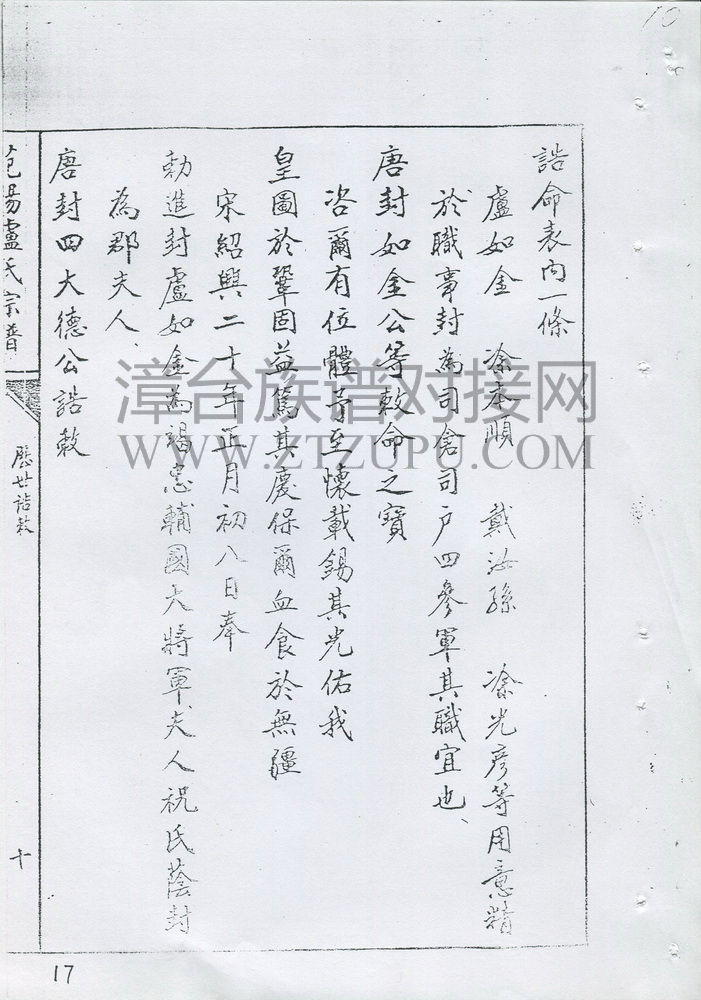 10
誥命表內一條
盧如金 涂本順 戴汝孫 涂光彥等用意精
於職事封為司倉司户四參軍其職宜也、
唐封如金公等敕命之寶
咨爾有位體予至懷載錫其光佑我
皇圖於鞏固益篤其慶保爾血食於無疆
宋紹興二十年正月初八日奉
勅進封盧如金為竭忠輔國大將軍夫人祝氏蔭封
為郡夫人、
唐封四大德公誥敕
范陽盧氏宗普
歷世誥敕
十
17
漳台族谱对接网
WWW.ZTZUPU.COM